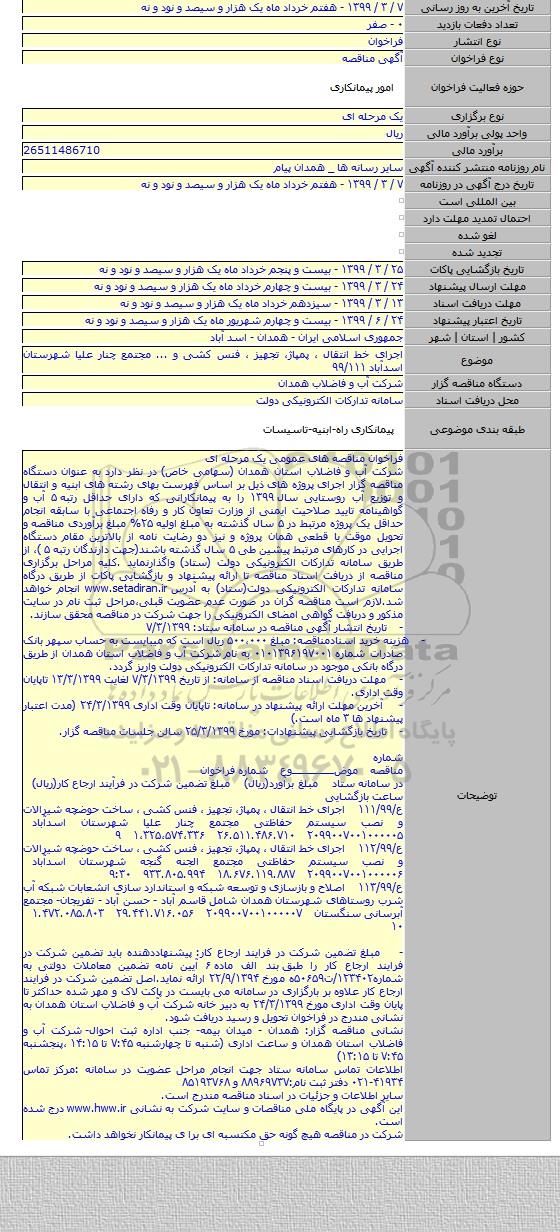 تاریخ آخرین به روز رسانی	۷ / ۳ / ۱۳۹۹ - هفتم خرداد ماه یک هزار و سیصد و نود و نه
تعداد دفعات بازدید	۰ - صفر
نوع انتشار	فراخوان
نوع فراخوان	آگهی مناقصه
حوزه فعالیت فراخوان	امور پیمانکاری
نوع برگزاری	یک مرحله ای
واحد پولی برآورد مالی	ریال
برآورد مالی	26511486710
نام روزنامه منتشر کننده آگهی	سایر رسانه ها _ همدان پیام
تاریخ درج آگهی در روزنامه	۷ / ۳ / ۱۳۹۹ - هفتم خرداد ماه یک هزار و سیصد و نود و نه
بین المللی است
احتمال تمدید مهلت دارد
لغو شده
تجدید شده
تاریخ بازگشایی پاکات	۲۵ / ۳ / ۱۳۹۹ - بیست و پنجم خرداد ماه یک هزار و سیصد و نود و نه
مهلت ارسال پیشنهاد	۲۴ / ۳ / ۱۳۹۹ - بیست و چهارم خرداد ماه یک هزار و سیصد و نود و نه
مهلت دریافت اسناد	۱۳ / ۳ / ۱۳۹۹ - سیزدهم خرداد ماه یک هزار و سیصد و نود و نه
تاریخ اعتبار پیشنهاد	۲۴ / ۶ / ۱۳۹۹ - بیست و چهارم شهریور ماه یک هزار و سیصد و نود و نه
کشور | استان | شهر	جمهوری اسلامی ایران - همدان - اسد آباد
موضوع	اجرای خط انتقال ، پمپاژ، تجهیز ، فنس کشی و ... مجتمع چنار علیا شهرستان
اسدآباد ۹۹/۱۱۱
دستگاه مناقصه گزار	شرکت آب و فاضلاب همدان
محل دریافت اسناد	سامانه تدارکات الکترونیکی دولت
طبقه بندی موضوعی	پیمانکاری راه-ابنیه-تاسیسات
توضیحات
فراخوان مناقصه های عمومی یک مرحله ای
شرکت آب و فاضلاب استان همدان (سهامی خاص) در نظر دارد به عنوان دستگاه
مناقصه گزار اجرای پروژه های ذیل بر اساس فهرست بهای رشته های ابنیه و انتقال
و توزیع آب روستایی سال ۱۳۹۹ را به پیمانکارانی که دارای حداقل رتبه ۵ آب و
گواهینامه تایید صلاحیت ایمنی از وزارت تعاون کار و رفاه اجتماعی با سابقه انجام
حداقل یک پروژه مرتبط در ۵ سال گذشته به مبلغ اولیه ۲۵% مبلغ برآوردی مناقصه و
تحویل موقت یا قطعی همان پروژه و نیز دو رضایت نامه از بالاترین مقام دستگاه
اجرایی در کارهای مرتبط پیشین طی ۵ سال گذشته باشند(جهت دارندگان رتبه ۵ )، از
طریق سامانه تدارکات الکترونیکی دولت (ستاد) واگذارنماید .کلیه مراحل برگزاری
مناقصه از دریافت اسناد مناقصه تا ارائه پیشنهاد و بازگشایی پاکات از طریق درگاه
سامانه تدارکات الکترونیکی دولت(ستاد) به آدرس www.setadiran.ir انجام خواهد
شد.لازم است مناقصه گران در صورت عدم عضویت قبلی،مراحل ثبت نام در سایت
مذکور و دریافت گواهی امضای الکترونیکی را جهت شرکت در مناقصه محقق سازند.
- تاریخ انتشار آگهی مناقصه در سامانه ستاد: ۷/۳/۱۳۹۹
- هزینه خرید اسنادمناقصه: مبلغ ۵۰۰,۰۰۰ ریال است که میبایست به حساب سپهر بانک
صادرات شماره ۰۱۰۱۳۹۶۱۹۷۰۰۱ به نام شرکت آب و فاضلاب استان همدان از طریق
درگاه بانکی موجود در سامانه تدارکات الکترونیکی دولت واریز گردد.
- مهلت دریافت اسناد مناقصه از سامانه: از تاریخ ۷/۳/۱۳۹۹ لغایت ۱۳/۳/۱۳۹۹ تاپایان
وقت اداری.
- آخرین مهلت ارائه پیشنهاد در سامانه: تاپایان وقت اداری ۲۴/۳/۱۳۹۹ (مدت اعتبار
پیشنهاد ها ۳ ماه است.)
- تاریخ بازگشایی پیشنهادات: مورخ ۲۵/۳/۱۳۹۹ سالن جلسات مناقصه گزار.
شماره
مناقصه موضـــــــــوع شماره فراخوان
در سامانه ستاد مبلغ برآورد(ریال) مبلغ تضمین شرکت در فرآیند ارجاع کار(ریال)
ساعت بازگشایی
ع/۱۱۱/۹۹ اجرای خط انتقال ، پمپاژ، تجهیز ، فنس کشی ، ساخت حوضچه شیرآلات
و نصب سیستم حفاظتی مجتمع چنار علیا شهرستان اسدآباد
۲۰۹۹۰۰۷۰۰۱۰۰۰۰۰۵ ۲۶.۵۱۱.۴۸۶.۷۱۰ ۱.۳۲۵.۵۷۴.۳۳۶ ۹
ع/۱۱۲/۹۹ اجرای خط انتقال ، پمپاژ، تجهیز ، فنس کشی ، ساخت حوضچه شیرآلات
و نصب سیستم حفاظتی مجتمع آجنه گنجه شهرستان اسدآباد
۲۰۹۹۰۰۷۰۰۱۰۰۰۰۰۶ ۱۸.۶۷۶.۱۱۹.۸۸۷ ۹۳۳.۸۰۵.۹۹۴ ۹:۳۰
ع/۱۱۳/۹۹ اصلاح و بازسازی و توسعه شبکه و استاندارد سازی انشعابات شبکه آب
شرب روستاهای شهرستان همدان شامل قاسم آباد - حسن آباد - تفریجان- مجتمع
آبرسانی سنگستان ۲۰۹۹۰۰۷۰۰۱۰۰۰۰۰۷ ۲۹.۴۴۱.۷۱۶.۰۵۶ ۱.۴۷۲.۰۸۵.۸۰۳
۱۰
- مبلغ تضمین شرکت در فرایند ارجاع کار: پیشنهاددهنده باید تضمین شرکت در
فرایند ارجاع کار را طبق بند الف ماده ۶ آیین نامه تضمین معاملات دولتی به
شماره۱۲۳۴۰۲/ت۵۰۶۵۹ه مورخ ۲۲/۹/۱۳۹۴ ارائه نماید.اصل تضمین شرکت در فرایند
ارجاع کار علاوه بر بارگزاری در سامانه می بایست در پاکت لاک و مهر شده حداکثر تا
پایان وقت اداری مورخ ۲۴/۳/۱۳۹۹ به دبیر خانه شرکت آب و فاضلاب استان همدان به
نشانی مندرج در فراخوان تحویل و رسید دریافت شود.
نشانی مناقصه گزار: همدان - میدان بیمه- جنب اداره ثبت احوال- شرکت آب و
فاضلاب استان همدان و ساعت اداری (شنبه تا چهارشنبه ۷:۴۵ تا ۱۴:۱۵ ،پنجشنبه
۷:۴۵ تا ۱۳:۱۵)
اطلاعات تماس سامانه ستاد جهت انجام مراحل عضویت در سامانه :مرکز تماس
۴۱۹۳۴-۰۲۱ دفتر ثبت نام:۸۸۹۶۹۷۳۷ و ۸۵۱۹۳۷۶۸
سایر اطلاعات و جزئیات در اسناد مناقصه مندرج است.
این آگهی در پایگاه ملی مناقصات و سایت شرکت به نشانی www.hww.ir درج شده
است.
شرکت در مناقصه هیچ گونه حق مکتسبه ای برا ی پیمانکار نخواهد داشت.